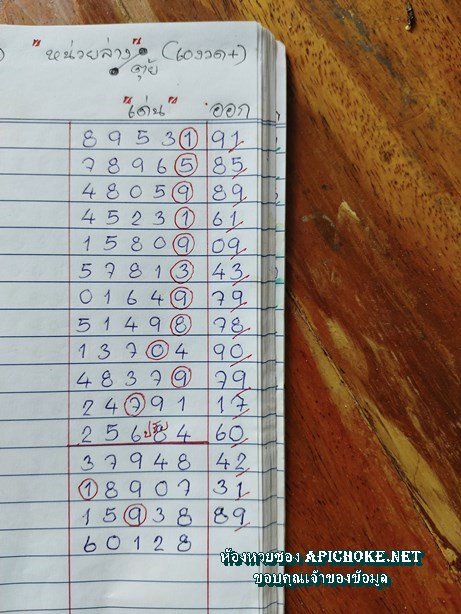 " หน่วยล่าง " (เองวด+)
คุ้ย
"เด่น" ออก
8 9 5 3 1 91
7 8 9 6 5 85
4 8 0 5 9 89
4 5 2 3 1 61
1 5 8 0 9 09
5 7 8 1 3 43
0 1 6 4 9 79
5 1 4 9 8 78
1 3 7 0 4 90
4 8 3 7 9 79
2 4 7 9 1 17
2 5 6 8 4 60
3 7 9 4 8 42
1 8 9 0 7 31
1 5 9 3 8 89
6 0 1 2 8
ห้องหวยซอง APICHOKE.NET
ขอบคุณเจ้าของข้อมูล